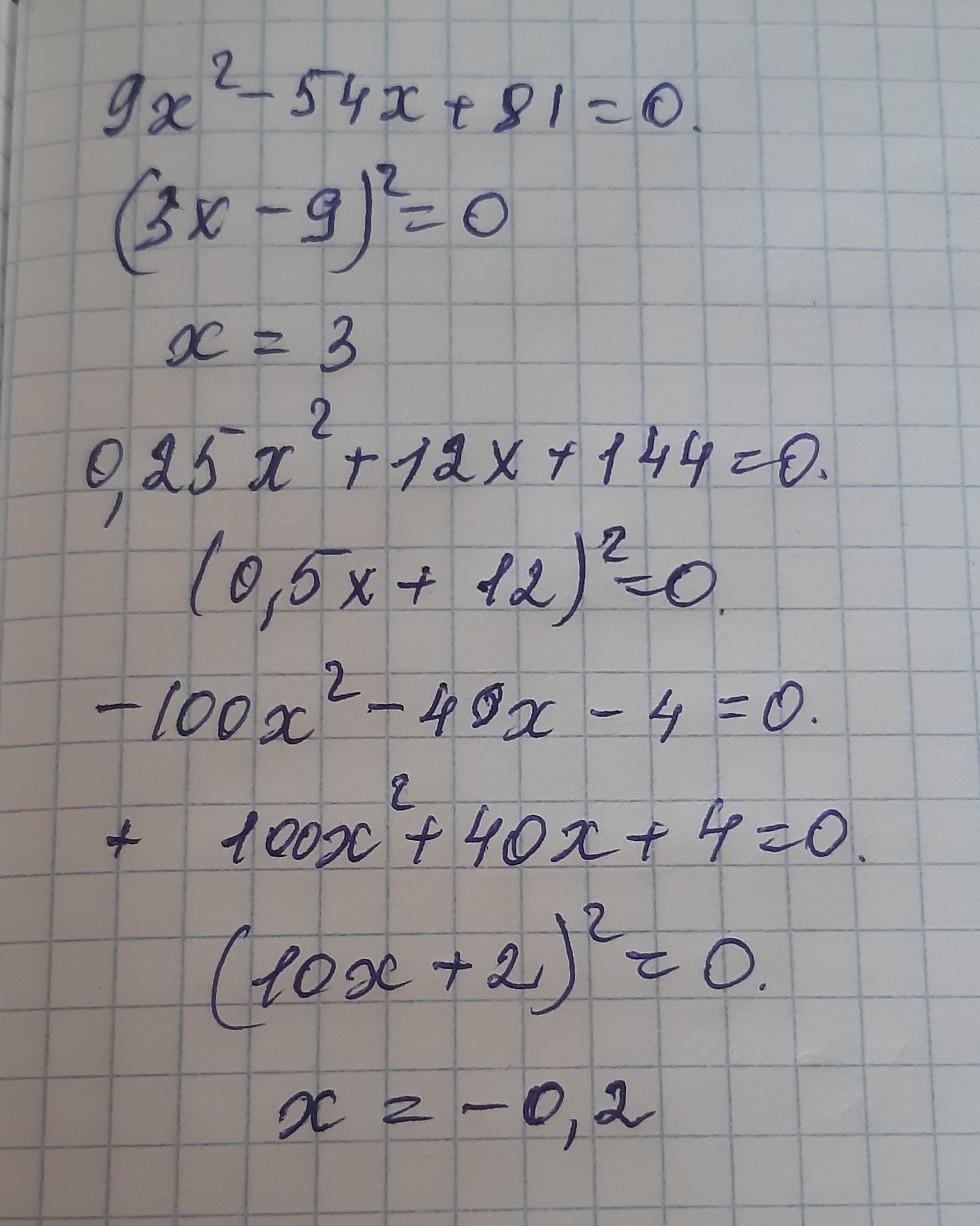 9x² - 54x + 81 = 0.
(3x - 9)² = 0
x = 3
0,25x² + 12x + 144 = 0.
(0,5x + 12)² = 0.
-100x² - 40x - 4 = 0.
+ 100x² + 40x + 4 = 0.
(10x + 2)² = 0.
x = -0,2